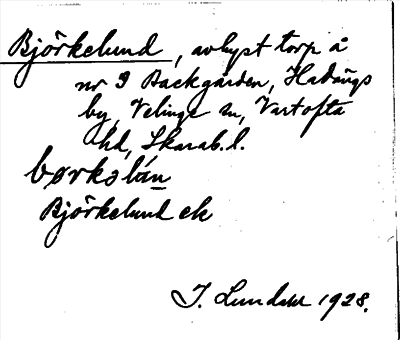 Björkelund, avhyst torp å
nr 3 Backgården, Hadängs
by, Velinge sn, Vartofta
hd, Skarab. l.
børkslán
Björkelund ek
J. Lundahl 1928.